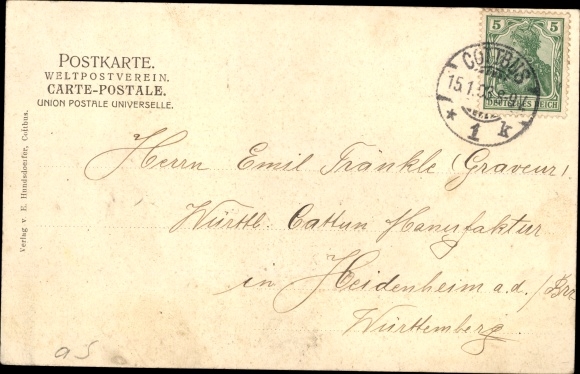 POSTKARTE.
WELTPOSTVEREIN.
CARTE-POSTALE.
UNION POSTALE UNIVERSELLE.
5 5
DEUTSCHES REICH
COTTBUS
15.1.06.8-9V.
* 1 k
Verlag v. E. Hundsdoerfer, Cottbus.
Herrn Emil Fränkle (Graveur).
Württb. Cattun Manufaktur
in Heidenheim a.d./Brz
Württemberg.